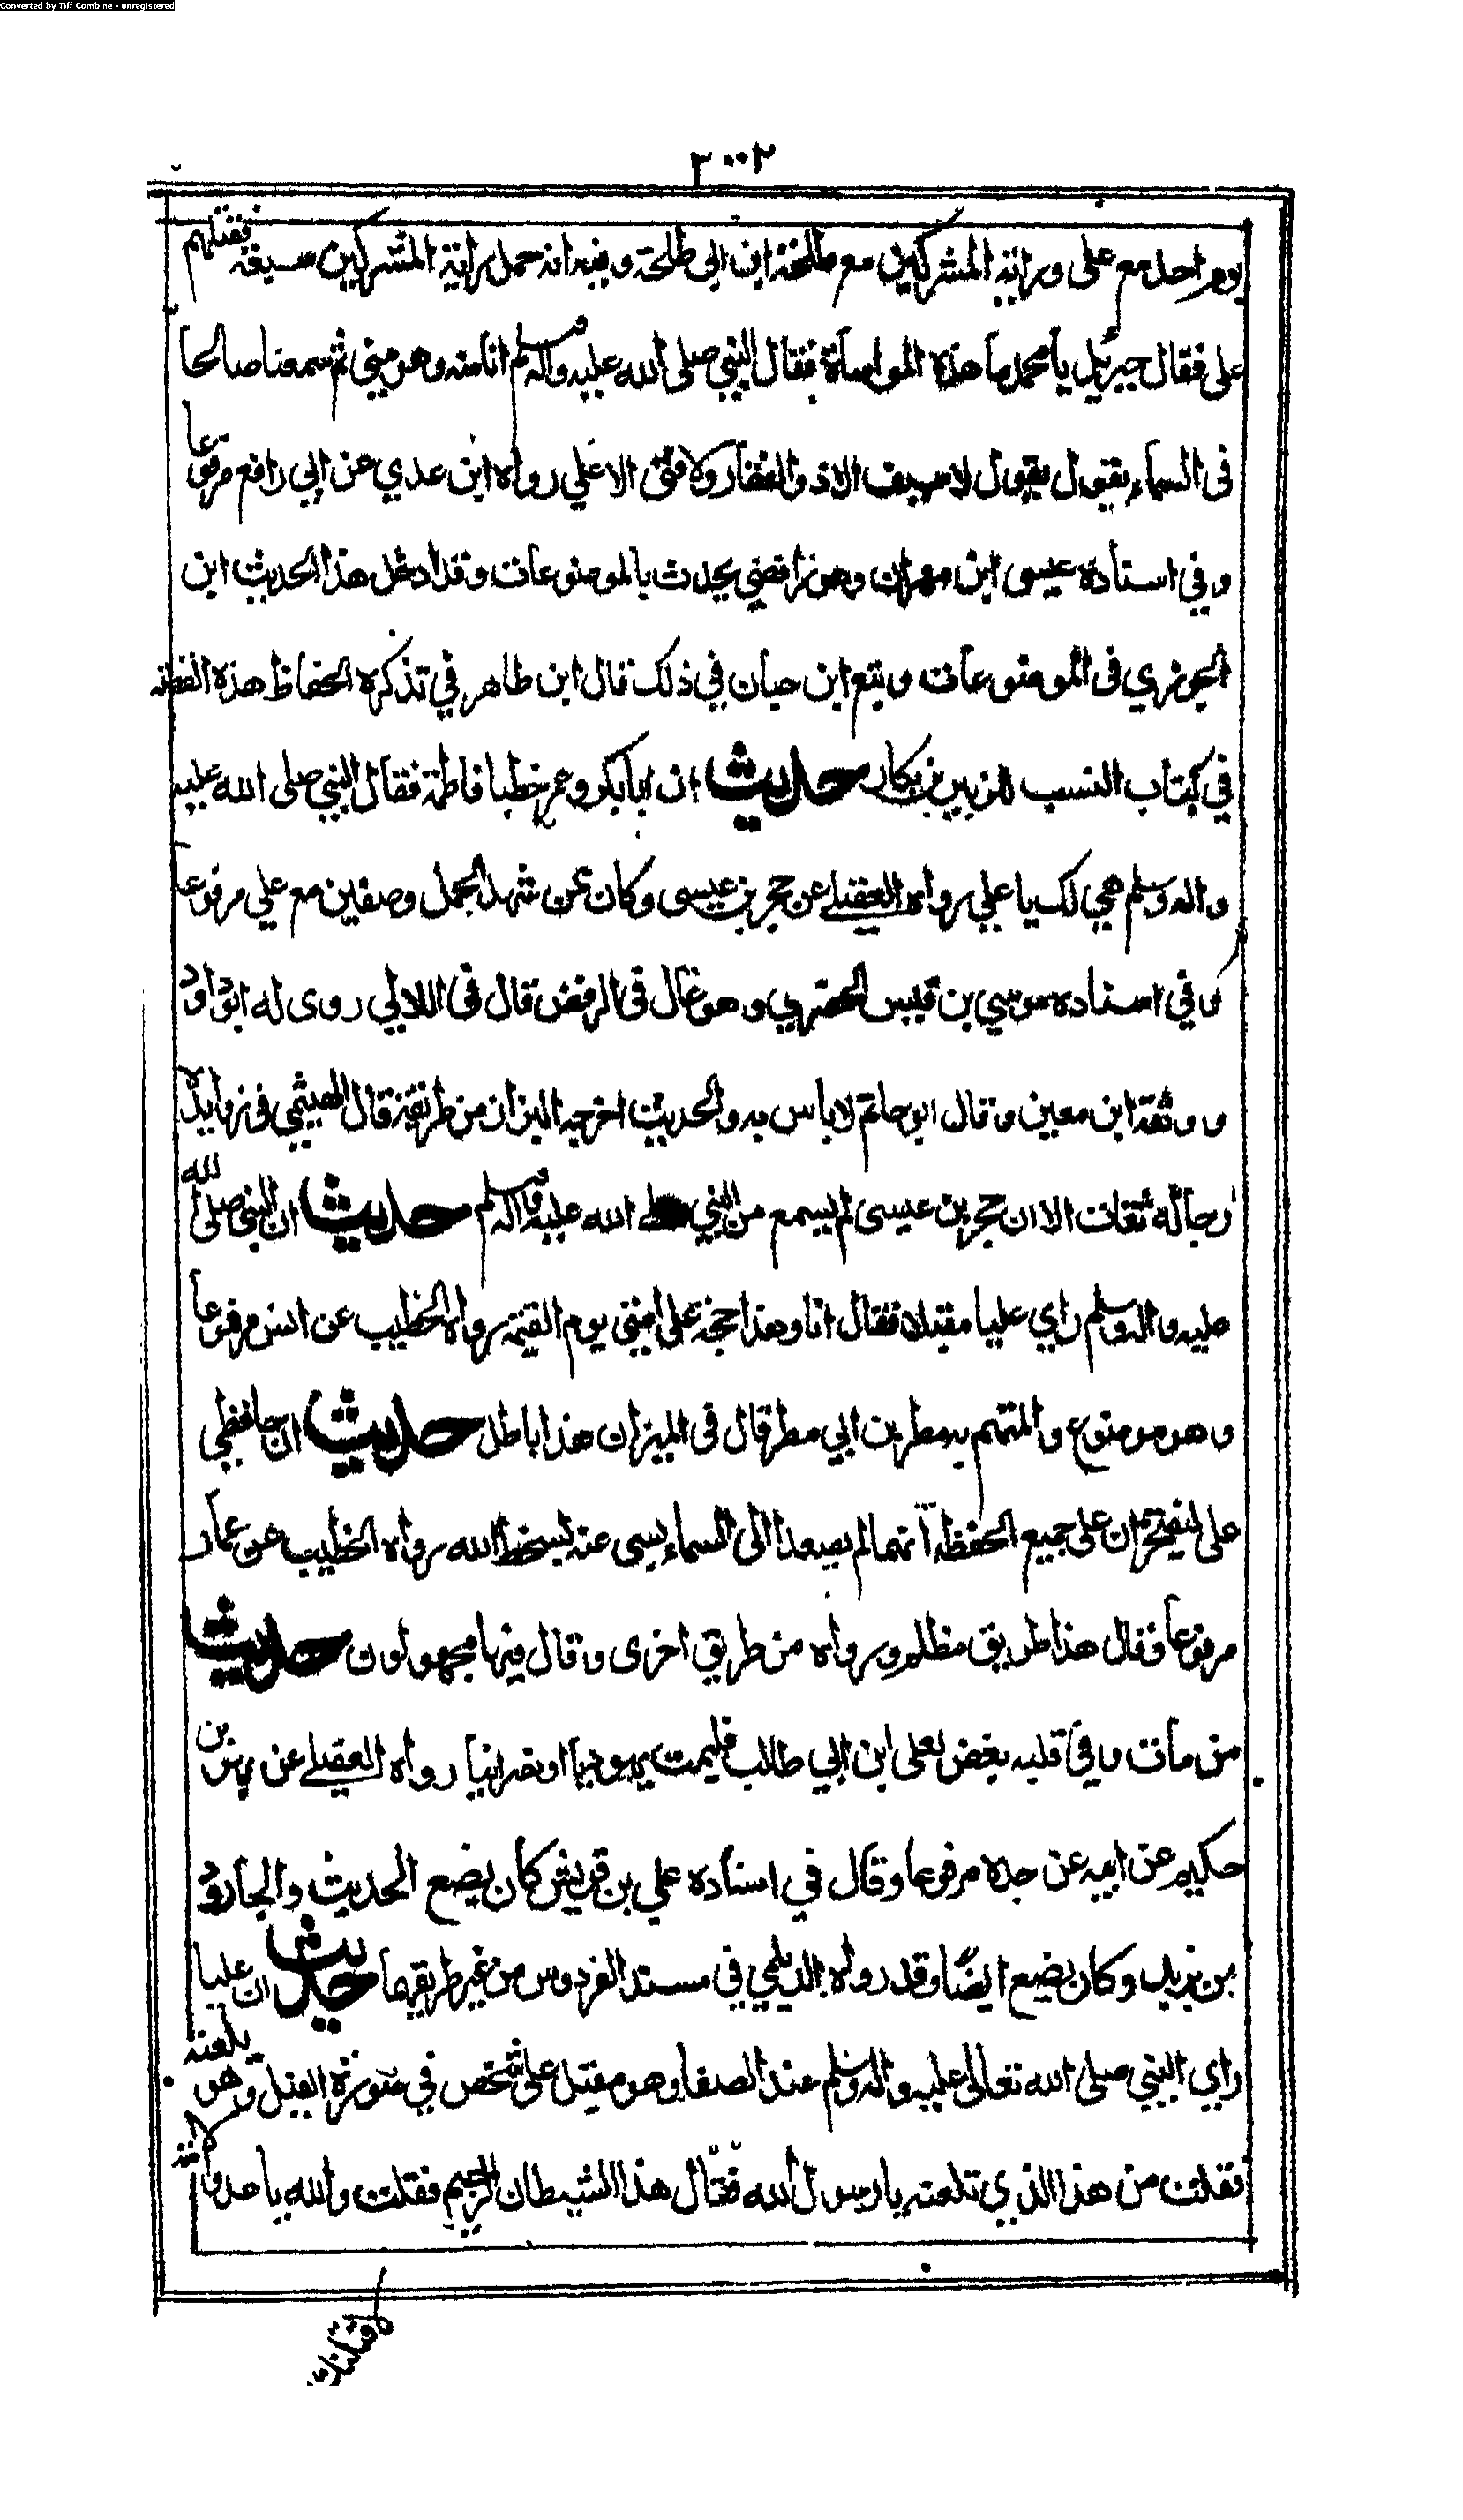 Converted by Tiff Combine - unregistered
٣٠٠٢
يوم احد مع على وراية المشركين مع طلحة ابن ابي طلحة وفيه انه حمل راية المشركين سبعة فقتلهم
على فقال جبرئيل يا محمد ما هذه المواساة فقال النبي صلى الله عليه واله وسلم انا منه وهو مني ثم سمعنا صائحا
فى السماء يقول يقول لا سيف الا ذو الفقار ولا فتى الا علي رواه ابن عدي عن ابي رافع مرفوعا
وفي اسناده عيسى ابن مهران وهو رافضي يحدث بالموضوعات وقد ادخل هذا الحديث ابن
الجوزي فى الموضوعات وتبع ابن حبان في ذلك قال ابن طاهر في تذكرة الحفاظ هذه القصة
في كتاب النسب للزبير بن بكار حديث ان ابا بكر وعمر خطبا فاطمة فقال النبي صلى الله عليه
واله وسلم هي لك يا علي رواه العقيلي عن حجر بن عيسى وكان ممن شهد الجمل وصفين مع علي مرفوعا
وفي اسناده موسي بن قيس الحضرمي وهو غال فى الرفض قال فى اللالي روى له ابو داود
ووثقه ابن معين وقال ابو حاتم لا باس به والحديث اخرجه البزار من طريقه قال الهيثمي في زوايده
رجاله ثقات الا ان حجر بن عيسى لم يسمع من النبي صلى الله عليه واله وسلم حديث ان النبي صلى الله
عليه واله وسلم راي عليا مقبلا فقال انا وهذا حجة على امتى يوم القيمة رواه الخطيب عن انس مرفوعا
وهو موضوع والمتهم به مطر بن ابي مطر قال فى الميزان هذا باطل حديث ان حافظي
على ليفتخران على جميع الحفظة انهما لم يصعدا الى السماء بشى عنه يسخط الله رواه الخطيب عن عمار
مرفوعا وقال هذا طريق مظلم ورواه من طريق اخرى وقال فيها مجهولون حديث
من مات وفي قلبه بغض لعلى ابن ابي طالب فليمت يهوديا او نصرانيا رواه العقيلي عن بهز بن
حكيم عن ابيه عن جده مرفوعا وقال في اسناده علي بن قريش كان يضع الحديث والجارود
بن يزيد وكان يضع ايضا وقد رواه الديلمي في مسند الفردوس من غير طريقهما حديث ان عليا
راي النبي صلى الله تعالى عليه واله وسلم عند الصفا وهو مقبل على شخص في صورة الفيل وهو يلعنه
فقلت من هذا الذي تلعنه يا رسول الله فقال هذا الشيطان الرجيم فقلت والله يا عدو الله
لاقتلنك